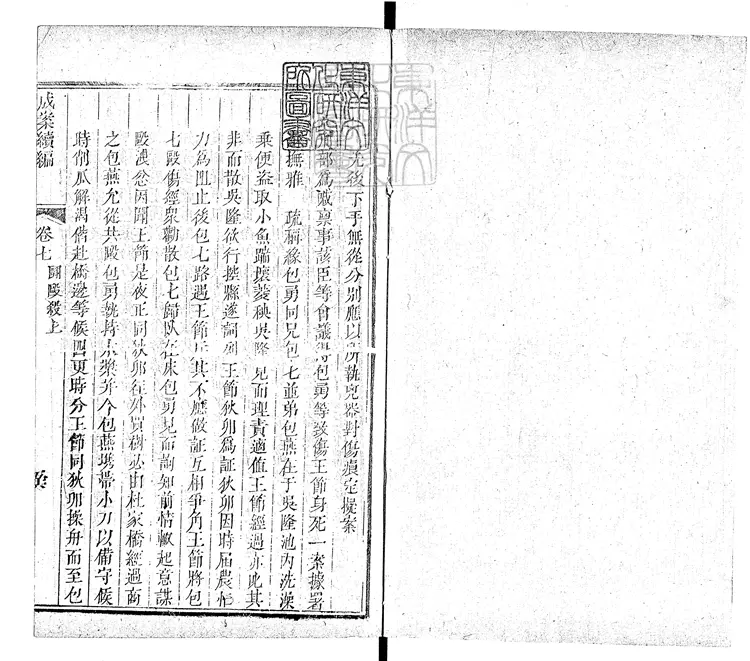 先後下手無從分別應以所執兇器對傷痕定擬案
部為賊稟事該臣等會議得包勇等致傷王節身死一案據署
撫雅 疏稱緣包勇同兄包七並弟包燕在于吳隆池內洗澡
乘便盜取小魚踹壞菱秧吳隆見而理責適值王節經過亦叱其
非而散吳隆欲行稟縣遂詞列王節狄卯為証狄卯因時屆農忙
力為阻止後包七路遇王節斥其不應做証互相爭角王節將包
七毆傷經眾勸散包七歸臥在床包勇見而詢知前情輒起意謀
毆洩忿因聞王節是夜正同狄卯在外買樹必由杜家橋經過商
之包燕允從共毆包勇執持木槳并令包燕携帶小刀以備守候
時削瓜解渴偕赴橋邊等候四更時分王節同狄卯操舟而至包
成案續編
卷七
鬬毆殺上
東洋文化研究所圖書